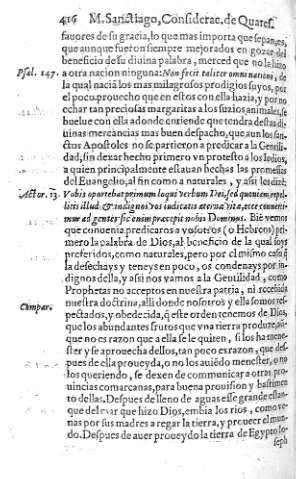 416 M. Sanctiago, Considerac. de Quares.
fauores de su gracia, lo que mas importa que sepan, es,
que aunque fueron siempre mejorados en gozar del
beneficio de su diuina palabra, merced que no le hizo
Psal. 147. a otra nacion ninguna: Non fecit taliter omni nationi, de
la qual naciã los mas milagrosos prodigios suyos, por
el poco prouecho que en estos con ella hazia, y por no
echar tan preciosas margaritas a los suzios animales, se
buelue con ella adonde entiende que tendrã estas di-
uinas mercancias mas buen despacho, que aun los san-
ctos Apostoles no se partieron a predicar a la Gentili-
dad, sin dexar hecho primero vn protesto a los Iudios,
a quien principalmente estauan hechas las promessas
del Euangelio, al fin como a naturales, y assi les dizẽ:
Actor. 13. Vobis oportebat primum loqui verbum Dei, sed quoniam repu-
listis illud & indignos vos iudicatis æterna vita, ecce conuerti-
mur ad gentes sic enim præcepit nobis Dominus. Biẽ vemos
que conuenia predicaros a vosotros (o Hebreos) pri-
mero la palabra de Dios, al beneficio de la qual soys
preferidos, como naturales, pero por el mismo caso q̃
la desechays y teneys en poco, os condenays por in-
dignos della, y assi nos vamos a la Gentilidad, como
Prophetas no acceptos en nuestra patria, ni recebida
nuestra doctrina, alli donde nosotros y ella somos res-
Compar. pectados, y obedecida, q̃ este orden tenemos de Dios,
que los abundantes frutos que vna tierra produze, aũ-
que no es razon que a ella se le quiten, si los ha mene-
ster y se aprouecha dellos, tan poco es razon, que des-
pues de ella proueyda, o no los auiẽdo menester, o no
los queriendo, se dexen de communicar a otras pro-
uincias comarcanas, para buena prouision y bastimen
to dellas. Despues de lleno de aguas esse grande estan-
que del mar que hizo Dios, embia los rios, como ve-
nas por sus madres a regar la tierra, y proueer el mun-
do. Despues de auer proueydo la tierra de Egypto Io-
seph